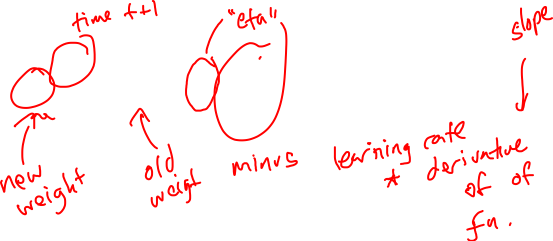 time t+1
"eta"
slope
new
weight
old
weight
minus
learning rate
* derivative
of of
fn.